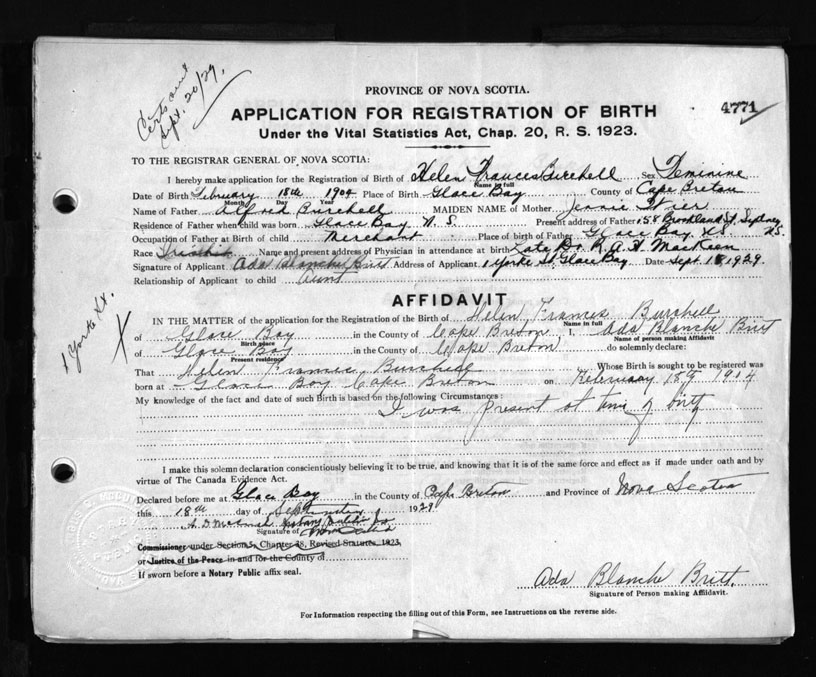 Certs sent
Sept. 20/29.
PROVINCE OF NOVA SCOTIA.
APPLICATION FOR REGISTRATION OF BIRTH
4771
Under the Vital Statistics Act, Chap. 20, R. S. 1923.
TO THE REGISTRAR GENERAL OF NOVA SCOTIA:
I hereby make application for the Registration of Birth of Helen Frances Burchell Sex Feminine
Name in full
Date of Birth February 18th 1904 Place of Birth Glace Bay County of Cape Breton
Month Day Year
Name of Father Alfred Burchell MAIDEN NAME of Mother Jennie
Residence of Father when child was born Glace Bay N. S. Present address of Father 158 Brookland St. Sydney N.S.
Occupation of Father at Birth of child Merchant Place of birth of Father Glace Bay N.S.
Race Name and present address of Physician in attendance at birth Late Dr. R. A. H. MacKeen
Signature of Applicant Ada Blanche Britt Address of Applicant 1 Yorke St. Glace Bay Date Sept. 18 1929
Relationship of Applicant to child Aunt
1 Yorke St.
X
AFFIDAVIT
IN THE MATTER of the application for the Registration of the Birth of Helen Francis Burchell
Name in full
of Glace Bay in the County of Cape Breton I, Ada Blanche Britt
Birth place
Name of person making Affidavit
of Glace Bay in the County of Cape Breton do solemnly declare:
Present residence
That Helen Francis Burchell Whose Birth is sought to be registered was
born at Glace Bay Cape Breton on February 18th 1904
My knowledge of the fact and date of such Birth is based on the following Circumstances:
I was present at time of birth
I make this solemn declaration conscientiously believing it to be true, and knowing that it is of the same force and effect as if made under oath and by
virtue of The Canada Evidence Act.
Declared before me at Glace Bay in the County of Cape Breton and Province of Nova Scotia
this 18th day of September 1929
Signature of
Commissioner under Section 5, Chapter 38, Revised Statutes 1923,
or Justice of the Peace in and for the County of
If sworn before a Notary Public affix seal.
Ada Blanche Britt.
Signature of Person making Affidavit.
For Information respecting the filling out of this Form, see Instructions on the reverse side.